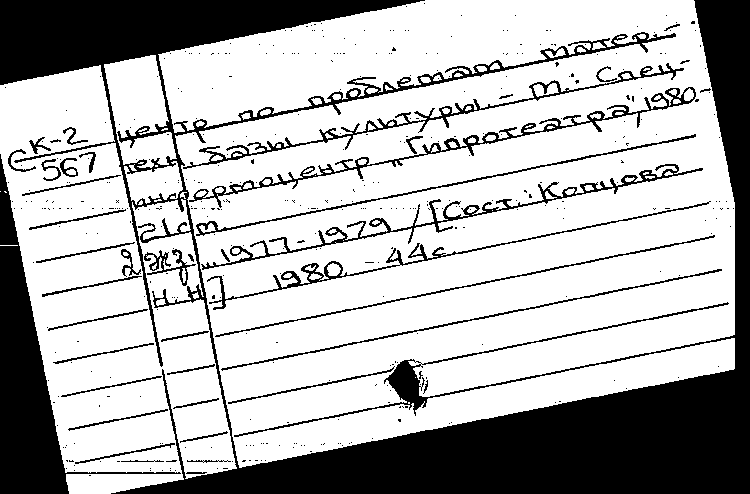 центр по проблемам матер.-
К-2
567
техн. базы культуры. - М.: Спец-
информацентр "Гипротеатра", 1980.-
21см.
2 экз. ..1977-1979 / [Сост.: Копцова
Н.Н.]. 1980 - 44с.